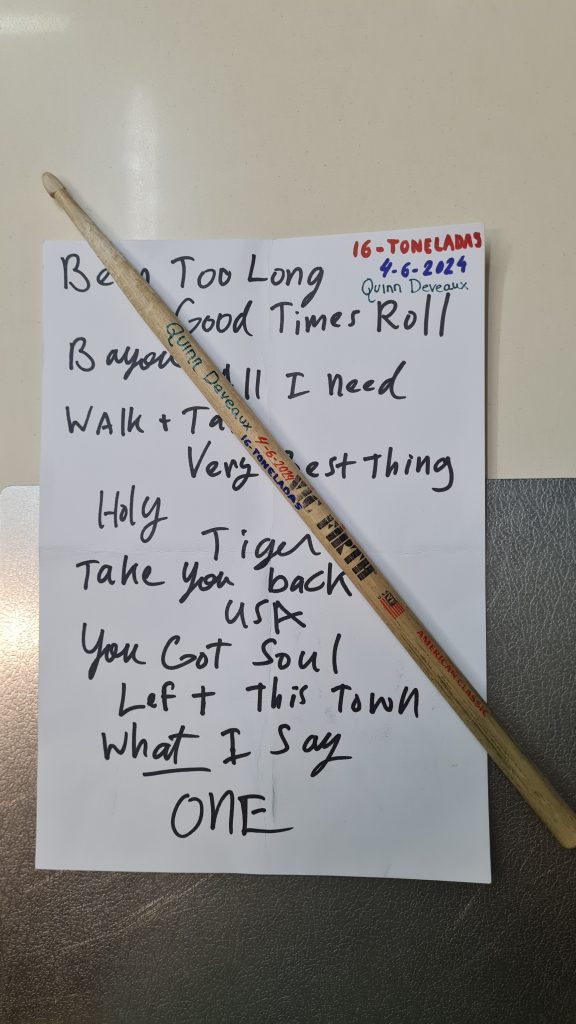 16-TONELADAS
4-6-2024
Quinn Deveaux
Been Too Long
Good Times Roll
Bayou All I need
WAlk +
Very Best Thing
Holy
Tiger
Take You back
USA
You Got Soul
Left This Town
What I Say
ONE
Quinn Deveaux
4-6-2024
16-TONELADAS
VIC FIRTH
AMERICAN CLASSIC